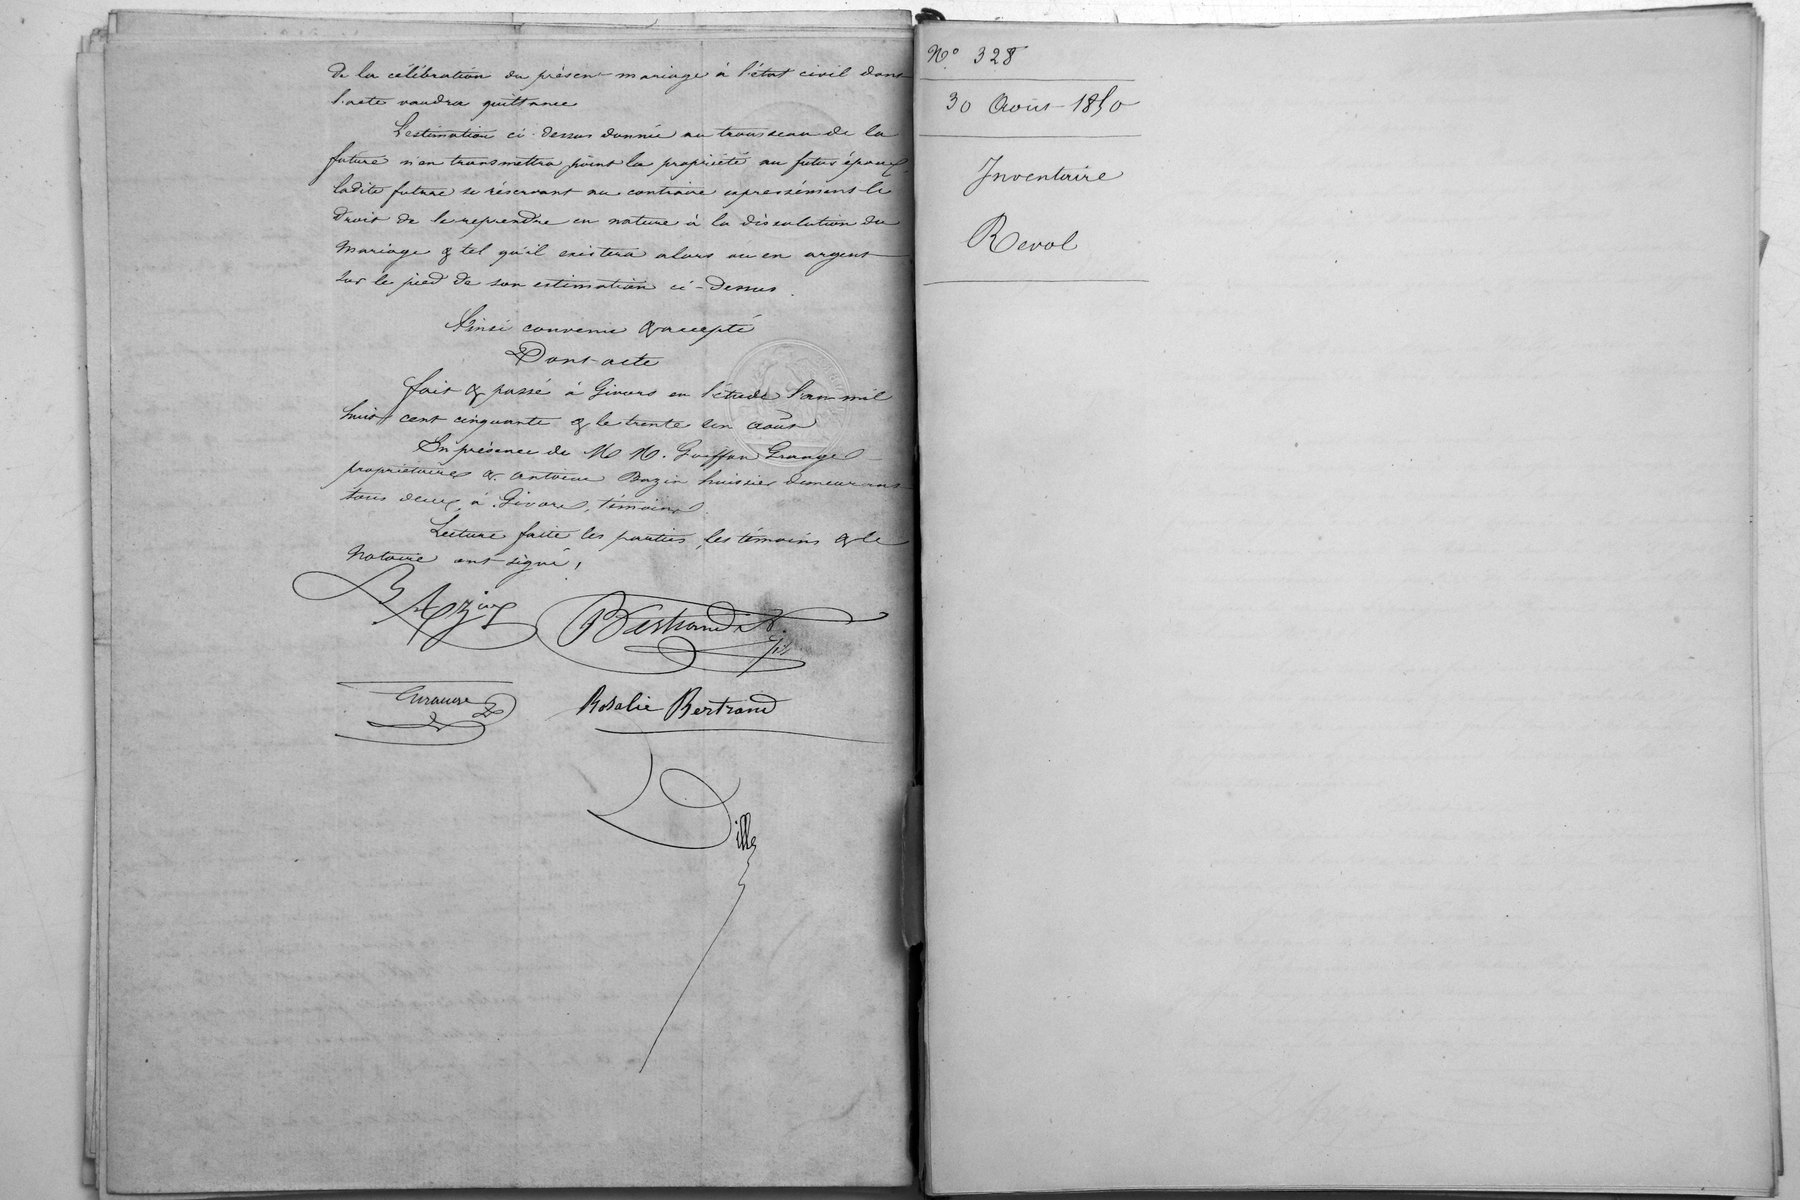 de la célébration du présent mariage à l'état civil dont
l'acte vaudra quittance
L'estimation ci-dessus donnée au trousseau de la
future n'en transmettra point la propriété au futur époux,
ladite future se réservant au contraire expressément le
droit de le reprendre en nature à la dissolution du
mariage & tel qu'il existera alors ou en argent
sur le pied de son estimation ci-dessus.
Ainsi convenu & accepté
Dont acte
fait & passé à Givors en l'étude l'an mil
huit cent cinquante & le trente un août
En présence de M M. Goiffon Grange
propriétaire & Antoine Bazin huissier demeurant
tous deux à Givors, témoins.
Lecture faite les parties, les témoins & le
Notaire ont signé,
BAzin Bertrand
fils
Rosalie Bertrand
Dille
N.° 328
30 Août 1850
Inventaire
Revol